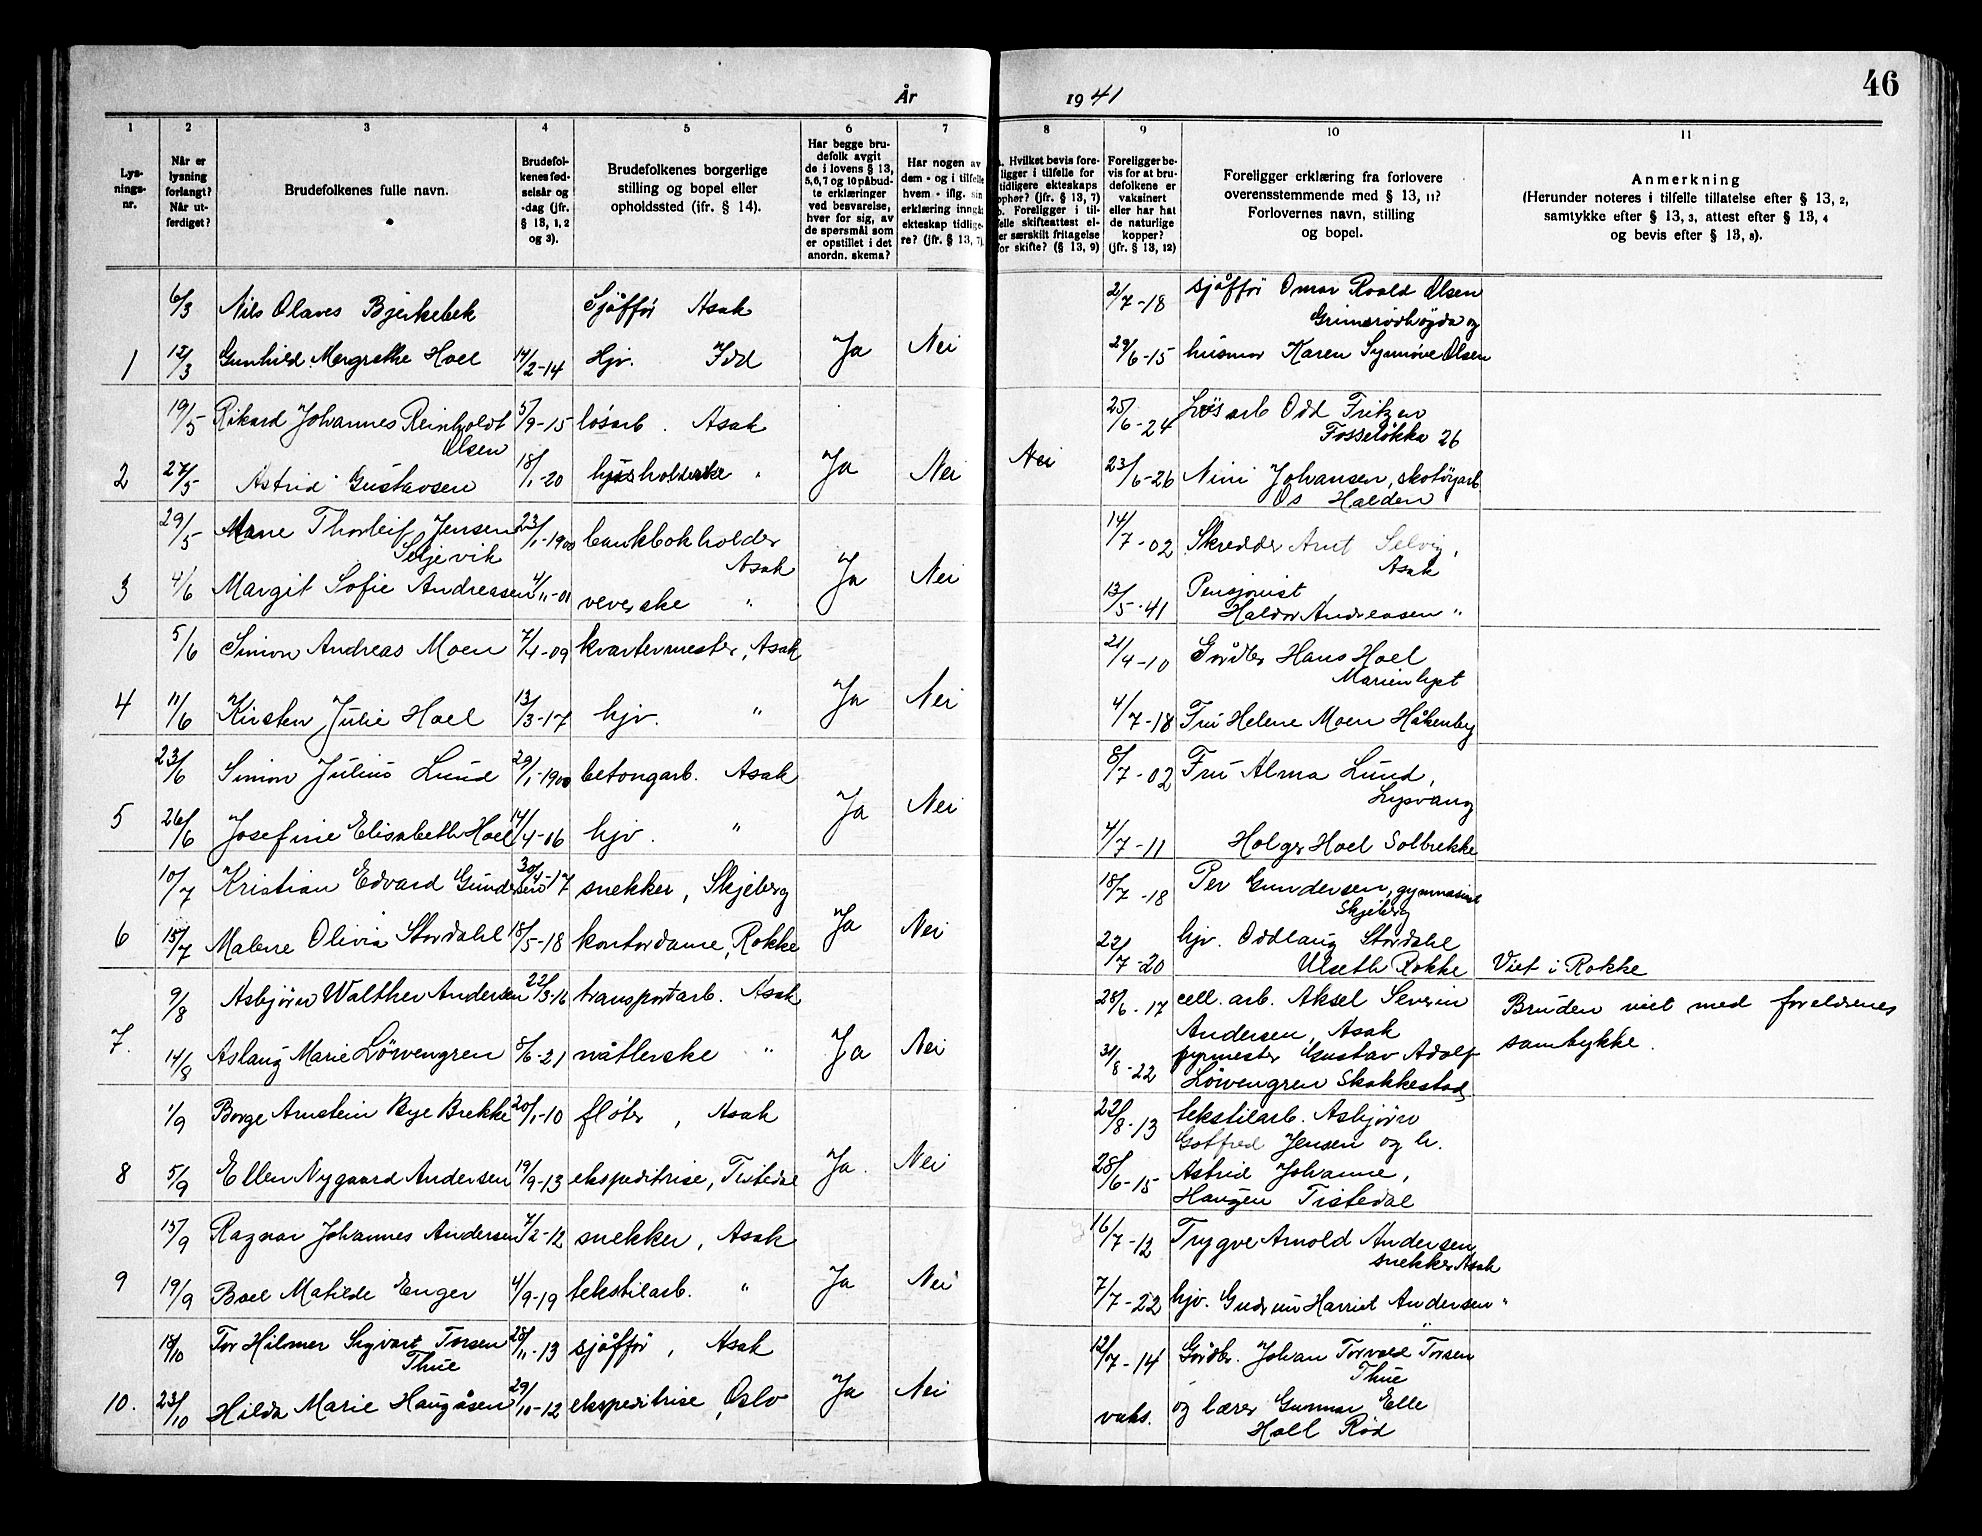 46
År 1941
1
2
3
4
5
6
7
8
9
10
11
Lys-
nings-
nr.
Når er
lysning
forlangt?
Når ut-
ferdiget?
Brudefolkenes fulle navn.
Brudefol-
kenes fød-
selsår og
-dag (jfr.
§ 13, 1, 2
og 3).
Brudefolkenes borgerlige
stilling og bopel eller
opholdssted (jfr. § 14).
Har begge bru-
defolk avgit
de i lovens § 13,
5,6,7 og 10 påbud-
te erklæringer
ved besvarelse,
hver for sig, av
de spørsmål som
er opstillet i det
anordn. skema?
Har nogen av
dem - og i tilfelle
hvem - iflg. sin
erklæring inngåt
ekteskap tidlige-
re? (jfr. § 13, 7).
a. Hvilket bevis fore-
ligger i tilfelle for
tidligere ekteskaps
ophør? (jfr. § 13, 7)
b. Foreligger i til-
felle skifteattest el-
ler særskilt fritagelse
for skifte? (§ 13, 9)
Foreligger be-
vis for at bru-
defolkene er
vaksinert
eller har hat
de naturlige
kopper?
(jfr. § 13, 12)
Foreligger erklæring fra forlovere
overensstemmende med § 13, 11?
Forlovernes navn, stilling
og bopel.
Anmerkning
(Herunder noteres i tilfelle tillatelse efter § 13, 2,
samtykke efter § 13, 3, attest efter § 13, 4
og bevis efter § 13, 8).
6/3 Nils Olaves Bjerkebek Sjåffør Asak 2/7-18 sjåffør Omar Roald Olsen
Grimsrødhøgda og
1 12/3 Gunhild Margrethe Hoel 14/2-14 Hjv. Idd Ja Nei 29/6-15 husmor Karen Synnøve Olsen
19/5 Rikard Johannes Reinholdt 5/9-15 løsarb. Asak 25/6-24 Løsarb Odd Fritzen
Olsen Fosseløkka 26
2 27/5 Astrid Gustavsen 18/1-20 husholderske " Ja Nei Nei 23/6-26 Nini Johansen, skotøyarb.
Os Halden
29/5 Thorleif Jensen 23/1-1900 bankbokholder 14/7-02 Skredder Arnt Selvig,
Skjevik Asak Asak
3 4/6 Margit Sofie Andreassen 4/11-01 veverske " Ja Nei 13/5-41 Pensjonist
Haldor Andreasen "
5/6 Simon Andreas Moen 7/4-09 kvartermester, Asak 21/4-10 Gårdbr Hans Hoel
Marienlyst
4 11/6 Kirsten Julie Hoel 13/3-17 hjv. " Ja Nei 4/7-18 Fru Helene Moen Håkenby
23/6 Simon Julius Lund 29/1-1900 betongarb. Asak 8/7-02 Fru Alma Lund,
Lysvang
5 26/6 Josefine Elisabeth Hoel 14/4-06 hjv. " Ja Nei 4/7-11 Holger Hoel Solbrekke
10/7 Kristian Edvard Gundersen 30/4-17 snekker, Skjeberg 18/7-18 Per Gundersen, gymnasiast
Skjeberg
6 15/7 Malene Olivia Stordahl 18/5-18 kontordame, Rokke Ja Nei 22/7-20 hjv. Oddlaug Stordahl
Ulseth Rokke Viet i Rokke
9/8 Asbjørn Walther Andersen 22/3-16 transportarb. Asak 28/6-17 cell. arb. Aksel Severin Bruden viet med foreldrenes
Andersen, Asak samtykke.
7. 14/8 Aslaug Marie Löwengren 8/6-21 nåtlerske " Ja Nei 31/8-22 fyrmester Gustav Adolf
Löwengren Skakkestad
1/9 Borge Arnstein Bye Brekke 20/1-10 fløter, Asak 22/8-13 tekstilarb. Asbjørn
Gotfred Jensen og h.
8 5/9 Ellen Nygaard Andersen 19/9-13 ekspeditrise, Tistedal Ja. Nei 28/6-15 Astrid Johanne,
Haugen Tistedal
15/9 Ragnar Johannes Andersen 7/2-12 snekker, Asak 16/7-12 Trygve Arnold Andersen
snekker Asak
9 19/9 Boel Matilde Enger 4/9-19 tekstilarb. " Ja Nei 7/7-22 hjv. Gudrun Harriet Andersen "
18/10 Tor Hilmer Sigvart Torsen 28/11-13 sjåffør, Asak 12/7-14 Gårdbr. Johan Torvald Torsen
Thue Thue
10. 23/10 Hilda Marie Haugåsen 29/10-12 ekspeditrise, Oslo Ja Nei vaks. og lærer Gunnar Elle
Holl Rød